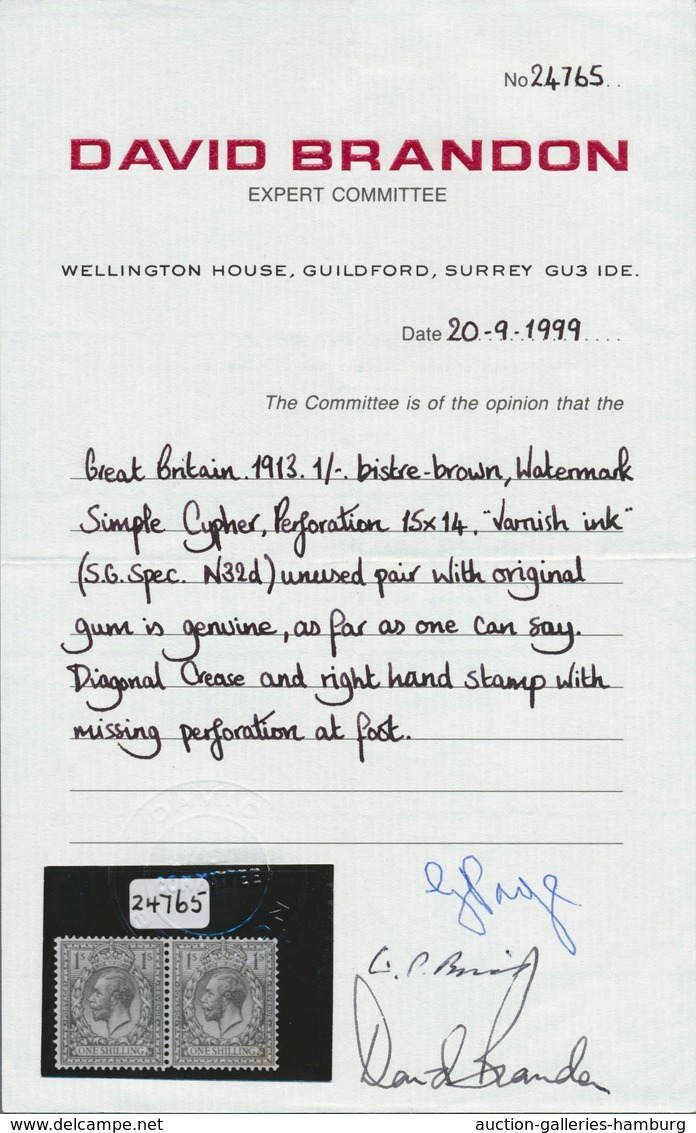 No 24765 . .
DAVID BRANDON
EXPERT COMMITTEE
WELLINGTON HOUSE, GUILDFORD, SURREY GU3 IDE.
Date 20-9-1999 . . . .
The Committee is of the opinion that the
Great Britain. 1913. 1/-. bistre-brown, Watermark
Simple Cypher, Perforation 15x14, "Varnish ink"
(S.G. Spec. N32d) unused pair with original
gum is genuine, as far as one can say.
Diagonal Crease and right hand stamp with
missing perforation at foot.
DAVID
24765
1S 1S 1S 1S
ONE SHILLING ONE SHILLING
David Brandon
auction-galleries-hamburg